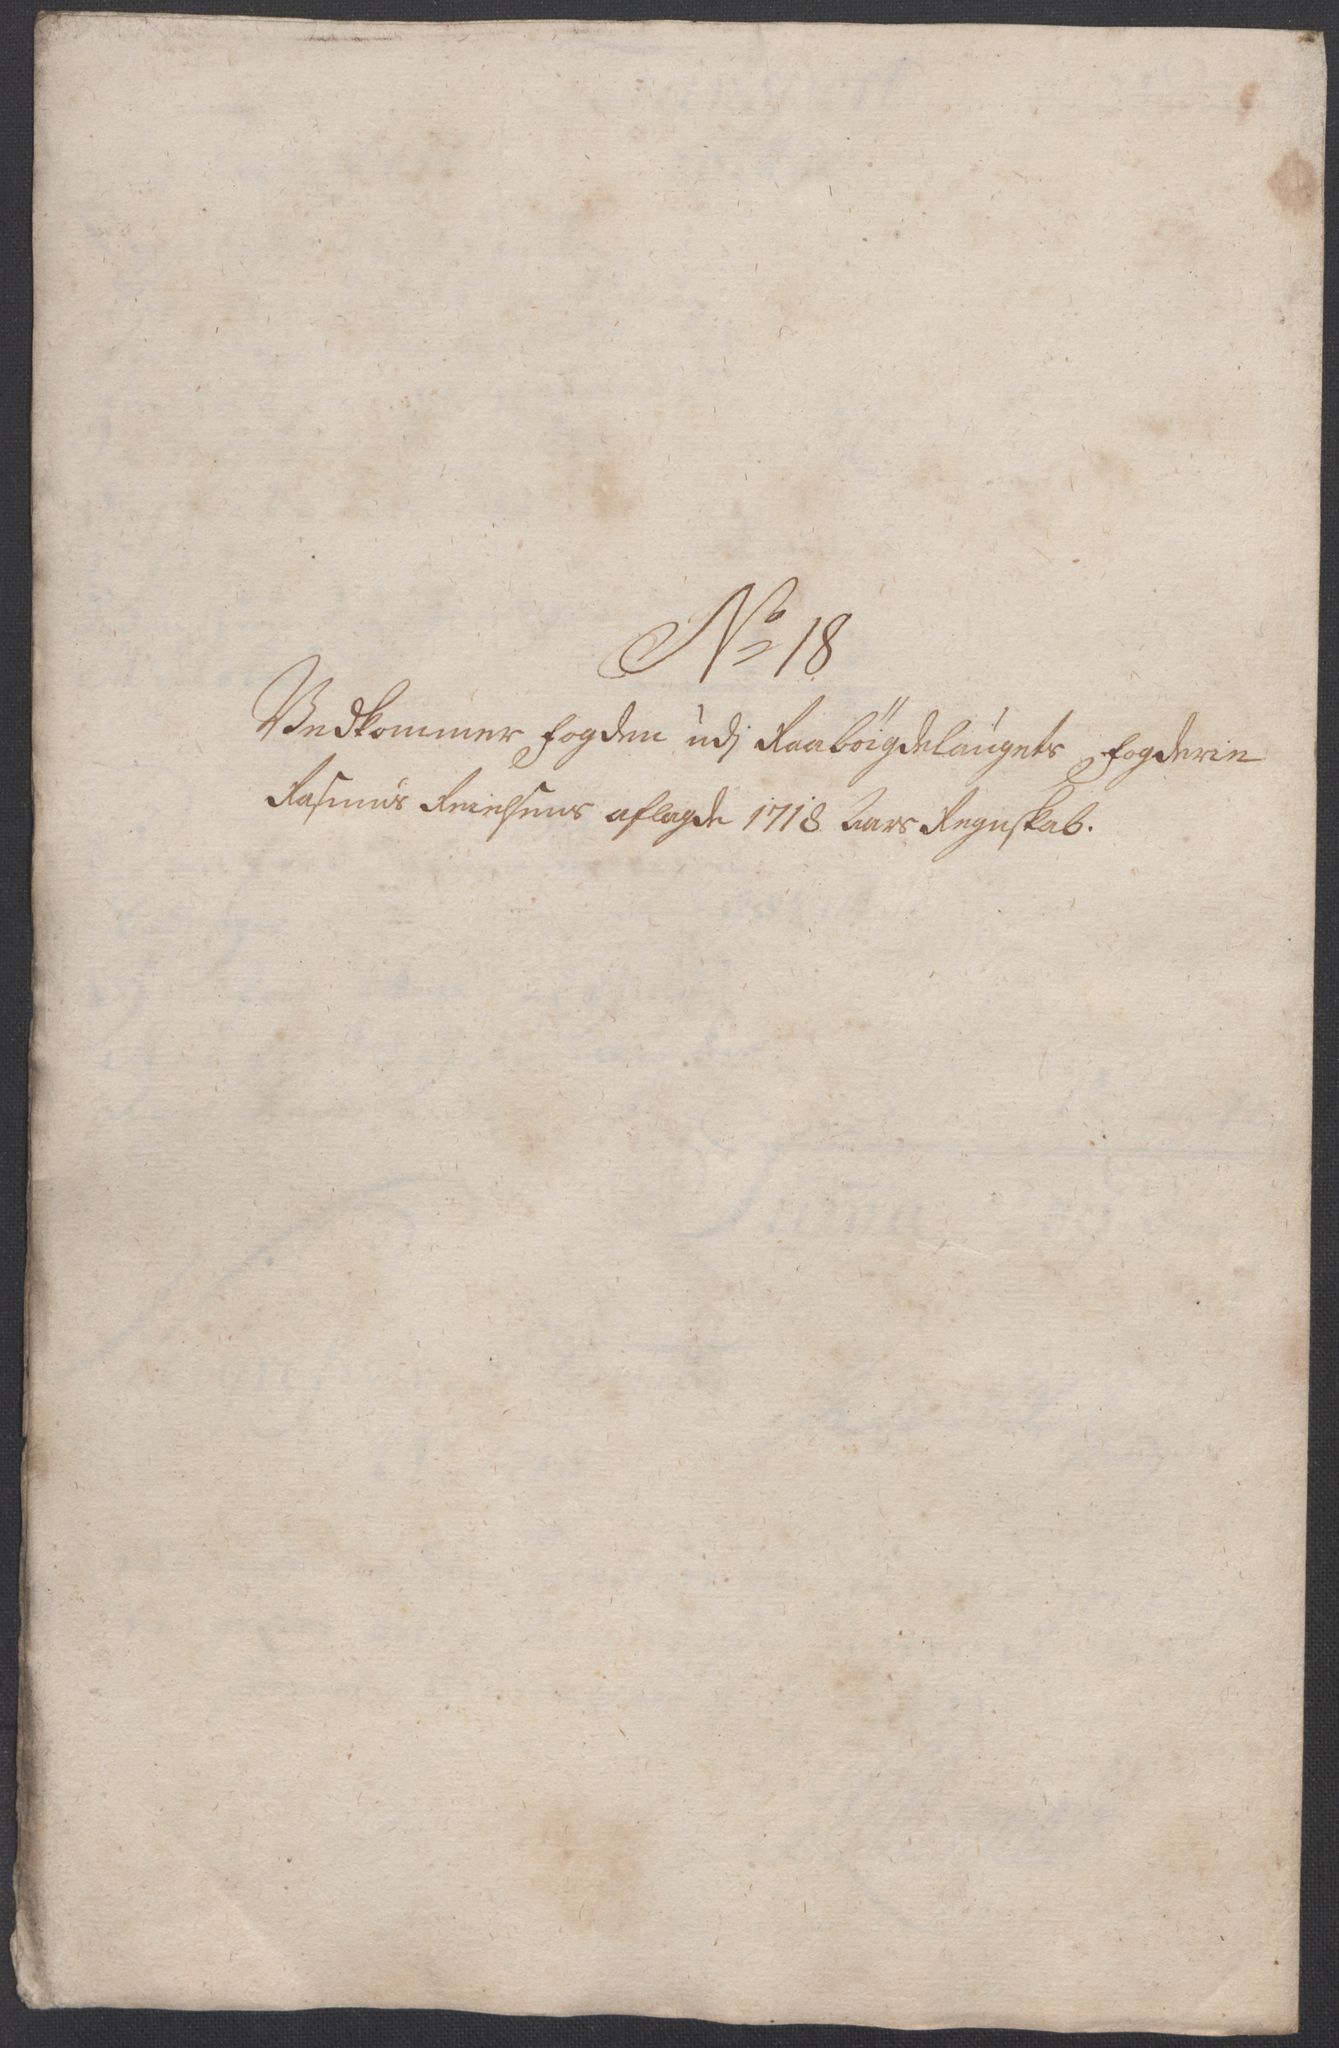 No 18
Vedkommer fogden udj Raabÿigdelaugets fogderie
Rasmus aflagde 1718 Aars Regnskab.